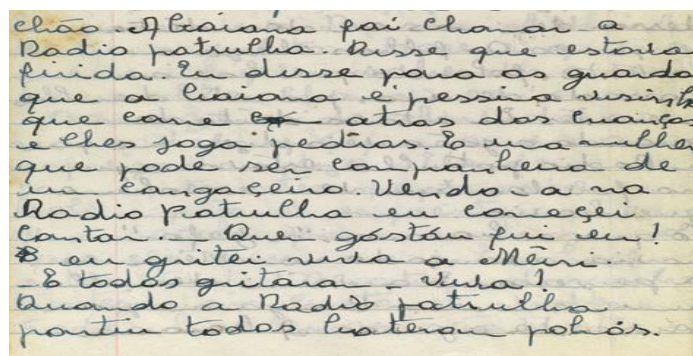 chão. A baiana foi chamar a
Radio patrulha. Disse que estava
firida. Eu disse para os guarda
que a baiana é pessima visinh
que corre atras das crianças
e lhes joga pedras. E uma mulher
que pode ser companheira de
um cangaçeiro. Vendo-a na
Radio Patrulha eu começei
cantar. Quem góstóu fui eu!
E eu gritei viva a Mêiri.
- E todos gritaram - Viva!
Quando a Radio patrulha
partiu todos bateram palmas.